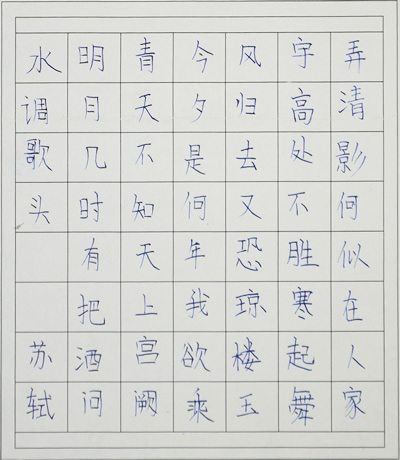 水调歌头 苏轼
明月几时有把酒问
青天不知天上宫阙
今夕是何年我欲乘
风归去又恐琼楼玉
宇高处不胜寒起舞
弄清影何似在人家